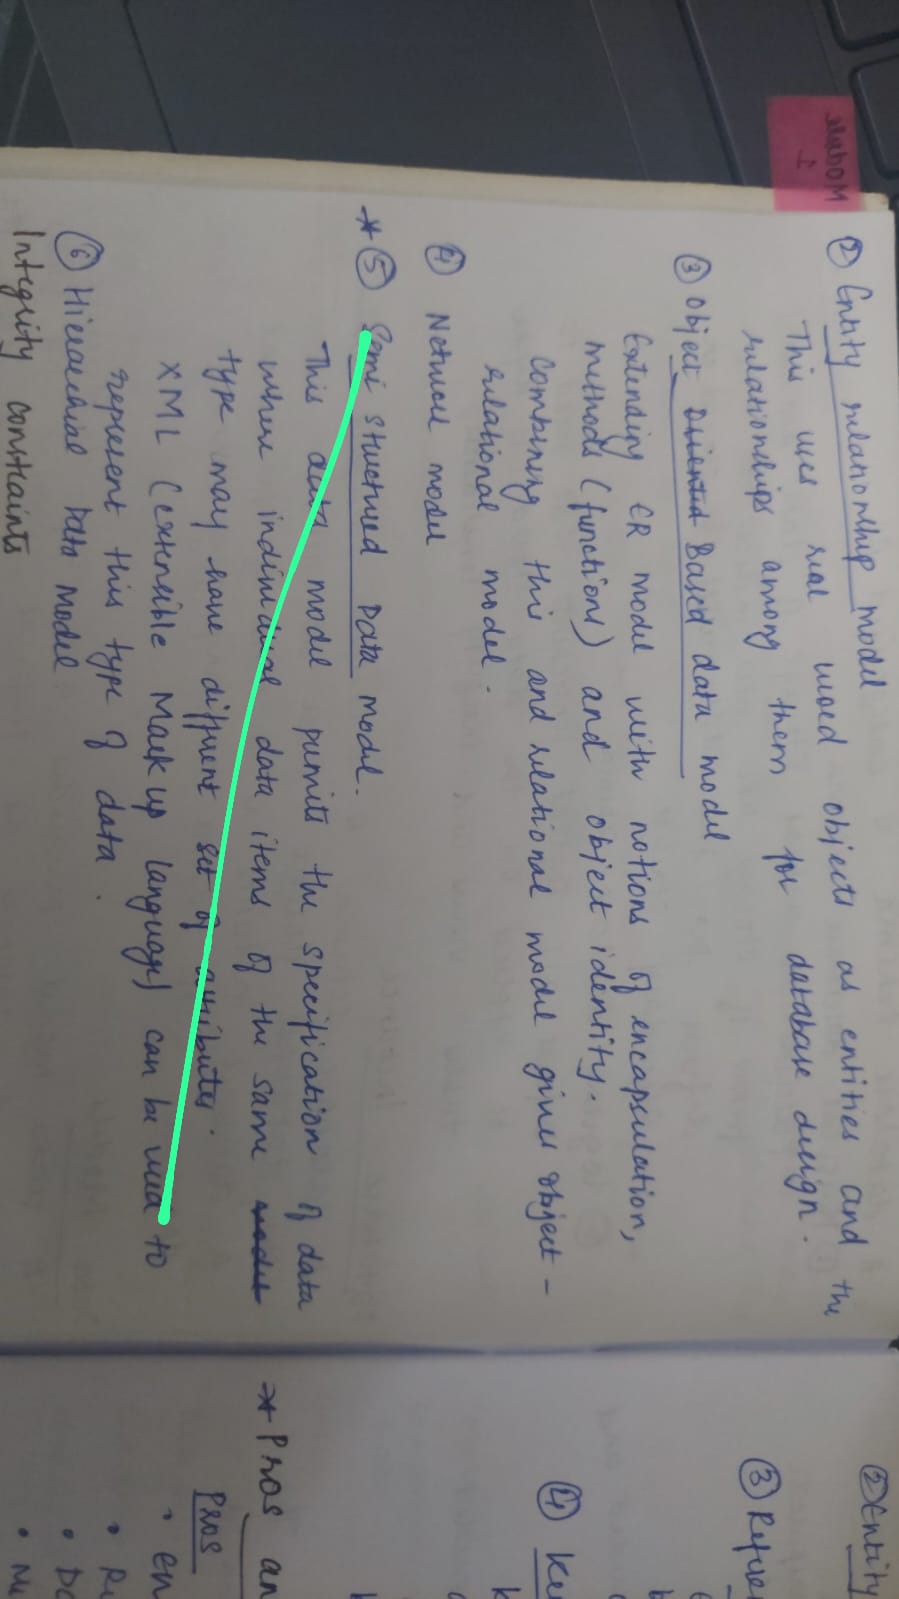 Module
1
② Entity relationship model
This uses real world objects as entities and the
relationships among them for database design.
③ Object Oriented Based data model
Extending ER model with notions of encapsulation,
methods (functions) and object identity.
Combining this and relational model gives object-
relational model.
④ Network model
* ⑤ Semi structured Data model.
This data model permits the specification of data
where individual data items of the same
type may have different set of attributes.
XML (extensible Mark up language) can be used to
represent this type of data.
⑥ Hierarchical Data Model
Integrity constraints
② Entity
③ Refere
④ Ke
* Pros an
Pros